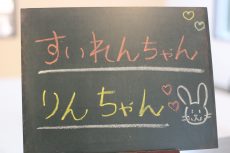 すいれんちゃん
りんちゃん